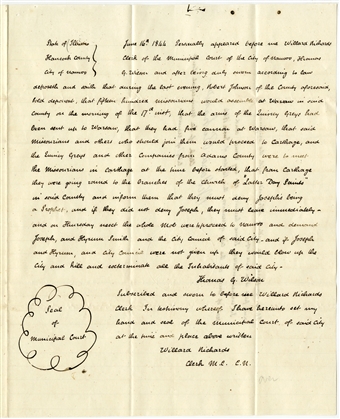 State of Illinois
Hancock County
City of Nauvoo
June 16th 1844 Personally appeared before me Willard Richards
Clerk of the Municipal Court of the City of Nauvoo, Thomas
G. Wilson and after being duly sworn according to law
deposeth and saith that during the last evening, Robert Johnson of the County aforesaid,
told deponent, that fifteen hundred Missourians would assemble at Warsaw in said
County on the morning of the 17th inst; that the arms of the Quincy Greys had
been sent up to Warsaw, that they had five cannon at Warsaw, that said
Missourians and others who should join them would proceed to Carthage, and
the Quincy Greys and other Companies from Adams County were to meet
the Missourians in Carthage at the time before stated, that from Carthage
they were going round to the branches of the Church of "Latter Day Saints"
in said County and inform them that they must deny Joseph's being
a Prophet, and if they did not deny Joseph, they must leave immediately -
and on Thursday next the whole Mob were to proceed to Nauvoo and demand
Joseph, and Hyrum Smith and the City Council of said City - and if Joseph
and Hyrum, and City Council were not given up, they would blow up the
City and kill and exterminate all the Inhabitants of said City -
Thomas G. Wilson
Subscribed and sworn to before me Willard Richards
Clerk. In testimony whereof I have hereunto set my
hand and seal of the Municipal Court of said City
at the time and place above written
Willard Richards
Clerk M.C. C.N.
Seal
of
Municipal Court